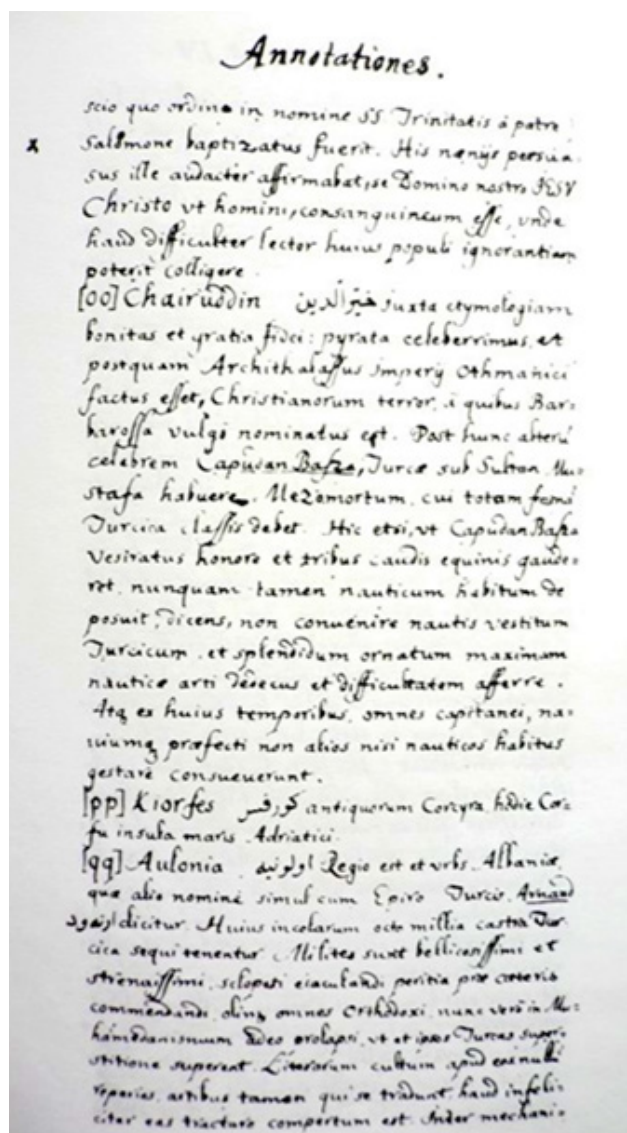 Annotationes.
scio quo ordine in nomine SS. Trinitatis à patre
x Salomone baptizatus fuerit. His nænijs persua-
sus ille audacter affirmabat, se Domino nostro IESV
Christo vt homini, consanguineum esse, vnde
haud difficulter lector huius populi ignorantiam
poterit colligere.
[oo] Chairuddin خير الدين juxta etymologiam
bonitas et gratia fidei: pyrata celeberrimus, et
postquam Archithalassus Imperij Othmanici
factus esset, Christianorum terror, à quibus Bar-
barossa vulgò nominatus est. Post hunc alterū
celebrem Capudan Basza, Turcæ sub Sultan Mu-
stafa habuere, Mezemortum, cui totam
Turcica classis debet. Hic etsi, vt Capudan Basza
Vesiratus honore et tribus caudis equinis gaude-
ret, nunquam tamen nauticum habitum de
posuit, dicens, non convenire nautis vestitum
Turcicum, et splendidum ornatum maximam
nauticæ arti dedecus et difficultatem afferre.
Atq ex huius temporibus, omnes capitanei, na-
viumq præfecti non alios nisi nauticos habitus
gestare consueuerunt.
[pp] Kiorfes كورفس antiquorum Corcyra, hodie Cor-
fu insula maris Adriatici.
[qq] Aulonia اولونيه Regio est et vrbs Albaniæ,
quæ alio nomine simul cum Epiro Turcis Arnaud
ارناود dicitur. Huius incolarum octo millia castra Tur-
cica sequi tenentur. Milites sunt bellicosissimi et
strenuissimi, sclopeti eiaculandi peritia præ cæteris
commendandi, olim omnes Orthodoxi, nunc verò in Mu-
hamedanismum adeo prolapsi, vt et ipsos Turcas super-
stitione superent. Literarum cultum apud eos nullū
reperies, artibus tamen qui se tradunt, haud infeli-
citer eas tractare compertum est. Inter mechani-